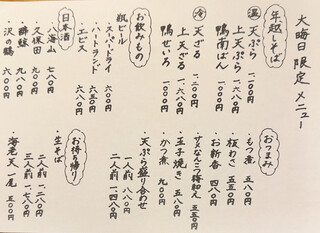 大晦日限定メニュー
年越しそば
温
天ぷら 一、二〇〇円
上天ぷら 一、六八〇円
鴨南ばん 一、四八〇円
冷
天ざる 一、二〇〇円
上天ざる 一、七〇〇円
鴨せいろ 一、五〇〇円
お飲みもの
瓶ビール
・スーパードライ 六六〇円
・ハートランド 六五〇円
・エビス 六八〇円
日本酒
・八海山 七八〇円
・久保田 九〇〇円
・酔鯨 九〇〇円
・沢の鶴 六〇〇円
おつまみ
・もつ煮 五八〇円
・板わさ 五五〇円
・お新香 四〇〇円
・サメなんこつ梅和え 五五〇円
・玉子焼き 五八〇円
・かつ煮 九〇〇円
・天ぷら盛り合わせ
一人前 八八〇円
二人前 一、四八〇円
お持ち帰り
・生そば
二人前 一、二八〇円
三人前 一、七八〇円
海老天 一尾 五〇〇円